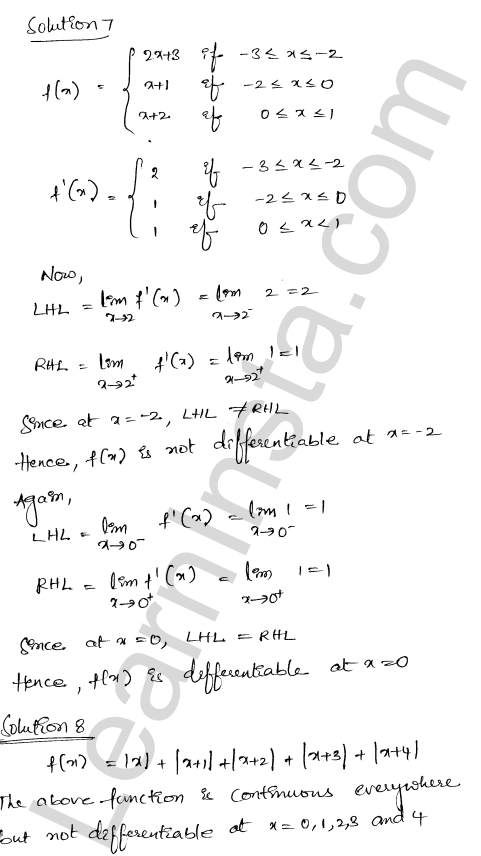 Solution 7
f(x) = { 2x+3 if -3 ≤ x ≤ -2
x+1 if -2 ≤ x ≤ 0
x+2 if 0 ≤ x ≤ 1
f'(x) = { 2 if -3 ≤ x ≤ -2
1 if -2 ≤ x ≤ 0
1 if 0 ≤ x < 1
Now,
LHL = lim x→2 f'(x) = lim x→2⁻ 2 = 2
RHL = lim x→2⁺ f'(x) = lim x→2⁺ 1 = 1
Since at x = -2, LHL ≠ RHL
Hence, f(x) is not differentiable at x = -2
Again,
LHL = lim x→0⁻ f'(x) = lim x→0⁻ 1 = 1
RHL = lim x→0⁺ f'(x) = lim x→0⁺ 1 = 1
Since at x = 0, LHL = RHL
Hence, f(x) is differentiable at x = 0
Solution 8
f(x) = |x| + |x+1| + |x+2| + |x+3| + |x+4|
The above function is continuous everywhere
but not differentiable at x = 0, 1, 2, 3 and 4
LearnInsta.com